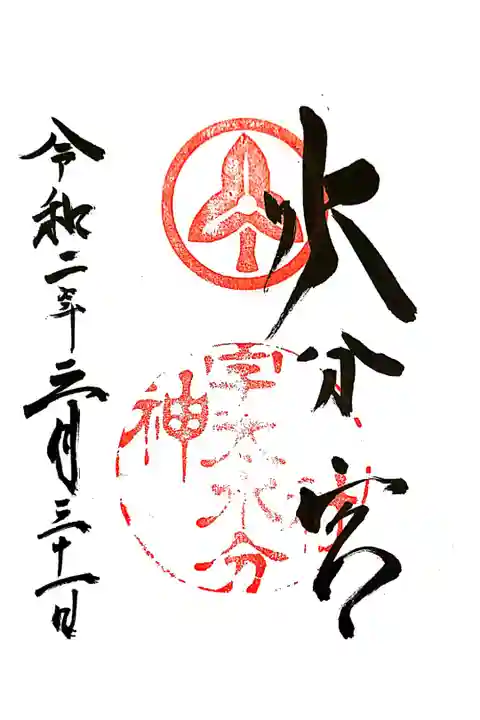 水分宮
宇太水分
神
令和二年三月三十一日